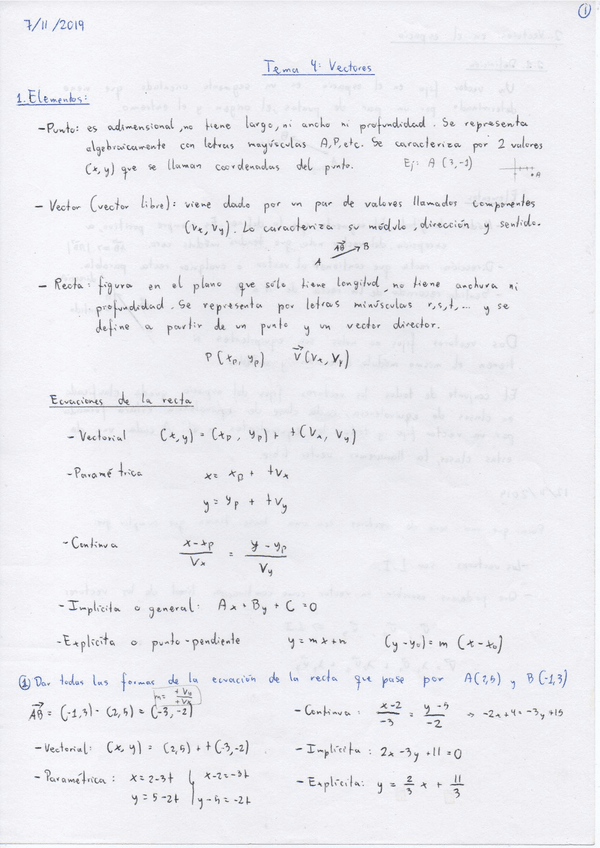 1
7/11/2019
Tema 4: Vectores
1. Elementos:
- Punto: es adimensional, no tiene largo, ni ancho ni profundidad. Se representa
algebraicamente con letras mayúsculas A, P, etc. Se caracteriza por 2 valores
(x, y) que se llaman coordenadas del punto. Ej: A (3, -1)
A
- Vector (vector libre): viene dado por un par de valores llamados componentes
(Vx, Vy). Lo caracteriza su módulo, dirección y sentido.
A AB B
- Recta: figura en el plano que sólo tiene longitud, no tiene anchura ni
profundidad. Se representa por letras minúsculas r, s, t, ... y se
define a partir de un punto y un vector director.
P (xp, yp) V (Vx, Vy)
Ecuaciones de la recta
- Vectorial (x, y) = (xp, yp) + t (Vx, Vy)
- Paramétrica x = xp + tVx
y = yp + tVy
- Continua (x - xp)/Vx = (y - yp)/Vy
- Implícita o general: Ax + By + C = 0
- Explícita o punto-pendiente y = mx + n (y - y0) = m (x - x0)
1 Dar todas las formas de la ecuación de la recta que pase por A (2, 5) y B (-1, 3)
AB = (-1, 3) - (2, 5) = (-3, -2) - Continua: (x - 2)/-3 = (y - 5)/-2 → -2x + 4 = -3y + 15
- Vectorial: (x, y) = (2, 5) + t (-3, -2) - Implícita: 2x - 3y + 11 = 0
- Paramétrica: x = 2 - 3t x - 2 = -3t - Explícita: y = 2/3 x + 11/3
y = 5 - 2t y - 5 = -2t